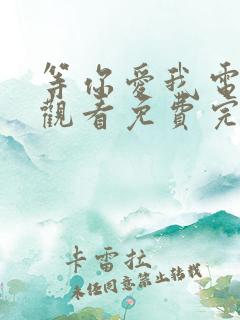 等你愛我電
觀看免費完
卡雷拉
未经同意禁止转载